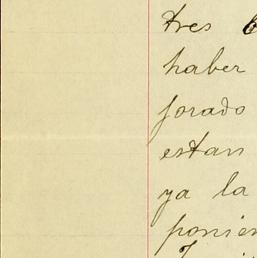 tres
haber
forado
estan
ya la
ponien